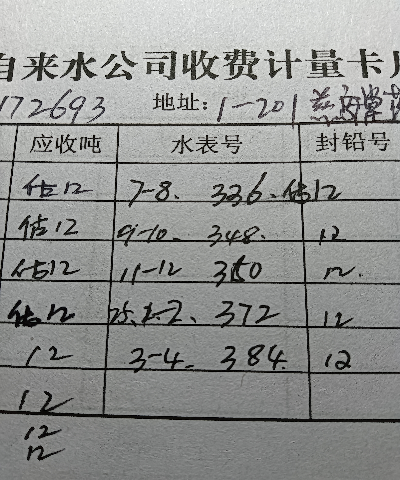 自来水公司收费计量卡片
172693 地址:1-201
应收吨 水表号 封铅号
估12 7-8. 336. 估12
估12 9-10. 348. 12
估12 11-12 360 12.
估12 25.1-2. 372 12
12 3-4. 384. 12
12
12
12